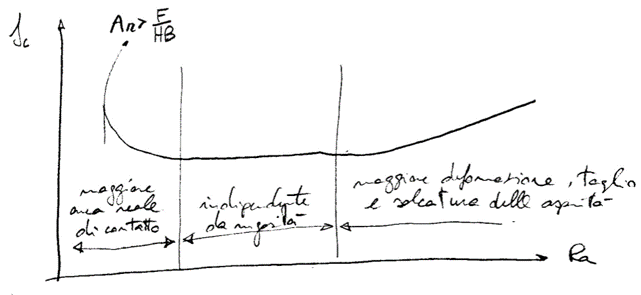 fc
Ar > E/HB
maggiore
area reale
di contatto
indipendente
da rugosità
maggiore deformazione, taglio
e solcatura delle asperità
Ra